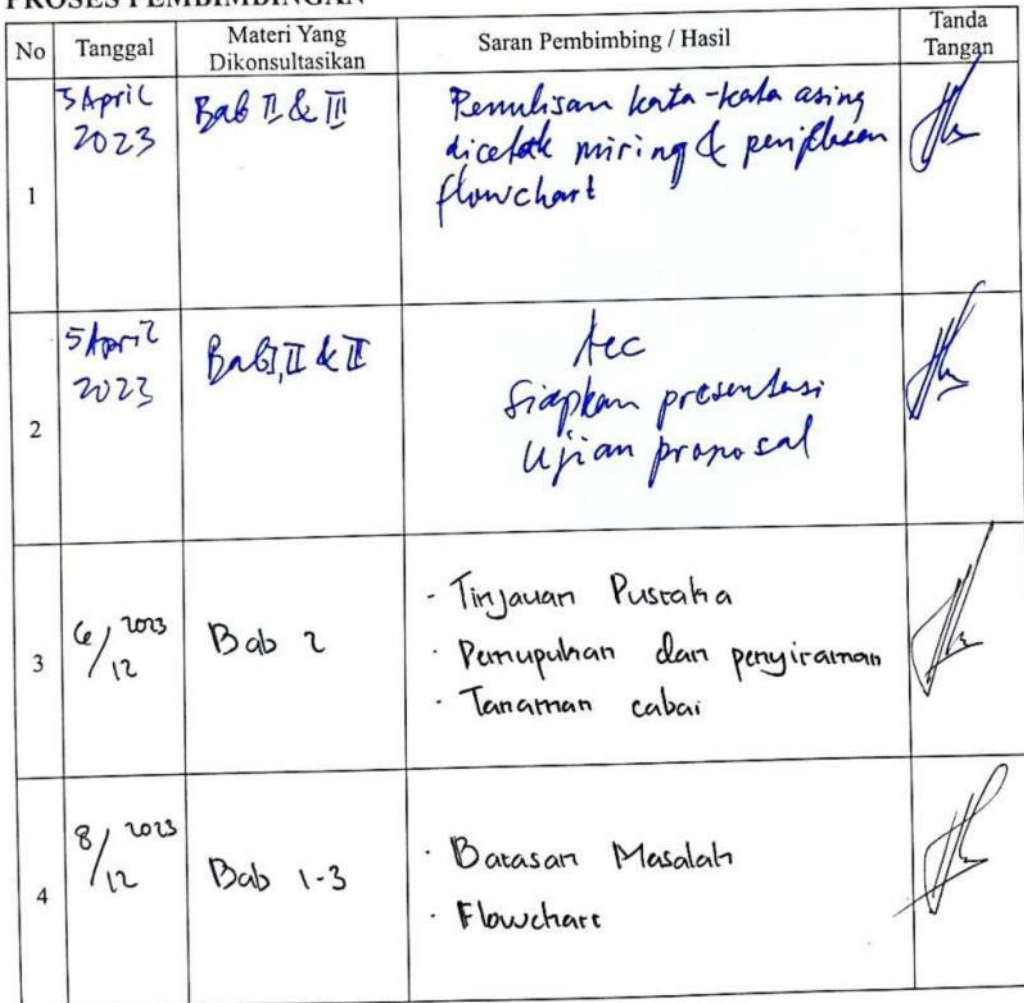 PROSES PEMBIMBINGAN
No Tanggal Materi Yang Dikonsultasikan Saran Pembimbing / Hasil Tanda Tangan
1
April
2023
Bab II & III
Penulisan kata-kata asing
dicetak miring & penjelasan
flowchart
2
5 April
2023
Bab I, II & III
Acc
Siapkan presentasi
Ujian proposal
3
6/12 2023
Bab 2
- Tinjauan Pustaka
· Pemupukan dan penyiraman
· Tanaman cabai
4
8/12 2023
Bab 1-3
· Batasan Masalah
· Flowchart